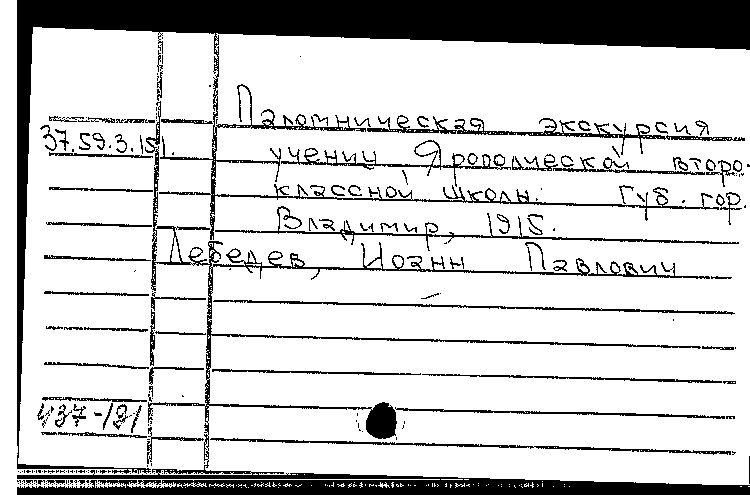 Паломническая экскурсия
37.59.3.151.
учениц Ярополческой второ-
классной школы. Губ. гор.
Владимир, 1915.
Лебедев, Иоанн Павлович
437-181